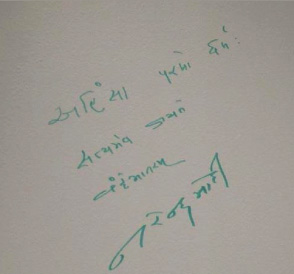 અહિંસા પરમો ધર્મ:
સત્યમેવ જયતે
વંદેમાતરમ્
નરેન્દ્ર મોદી